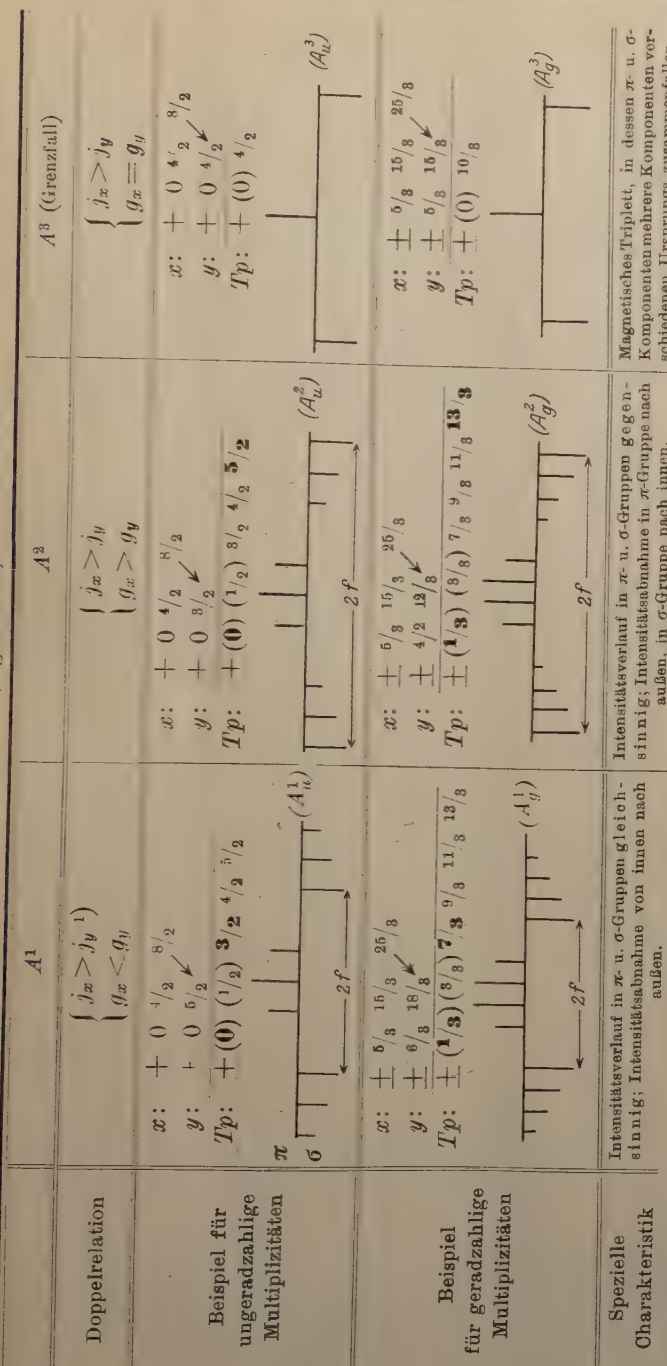 A¹
A²
A³ (Grenzfall)
Doppelrelation
{ jx > jy ¹)
{ gx < gy
{ jx > jy
{ gx > gy
{ jx > jy
{ gx = gy
Beispiel für
ungeradzahlige
Multiplizitäten
x: + 0 4/2 8/2
y: + 0 5/2
Tp: + (0) (1/2) 3/2 4/2 5/2
π
σ
2f
(A¹u)
x: + 0 4/2 8/2
y: + 0 3/2
Tp: + (0) (1/2) 3/2 4/2 5/2
2f
(A²u)
x: + 0 4/2 8/2
y: + 0 4/2
Tp: + (0) 4/2
(A³u)
Beispiel
für geradzahlige
Multiplizitäten
x: ± 5/3 15/3 25/3
y: ± 6/3 18/3
Tp: ± (1/3) (3/3) 7/3 9/3 11/3 13/3
2f
(A¹g)
x: ± 5/3 15/3 25/3
y: ± 4/2 12/3
Tp: ± (1/3) (3/3) 7/3 9/3 11/3 13/3
2f
(A²g)
x: ± 5/3 15/3 25/3
y: ± 5/3 15/3
Tp: ± (0) 10/3
(A³g)
Spezielle
Charakteristik
Intensitätsverlauf in π- u. σ-Gruppen gleich-
sinnig; Intensitätsabnahme von innen nach
außen.
Intensitätsverlauf in π- u. σ-Gruppen gegen-
sinnig; Intensitätsabnahme in π-Gruppe nach
außen, in σ-Gruppe nach innen.
Magnetisches Triplett, in dessen π- u. σ-
Komponenten mehrere Komponenten ver-
schiedenen Ursprungs zusammenfallen.